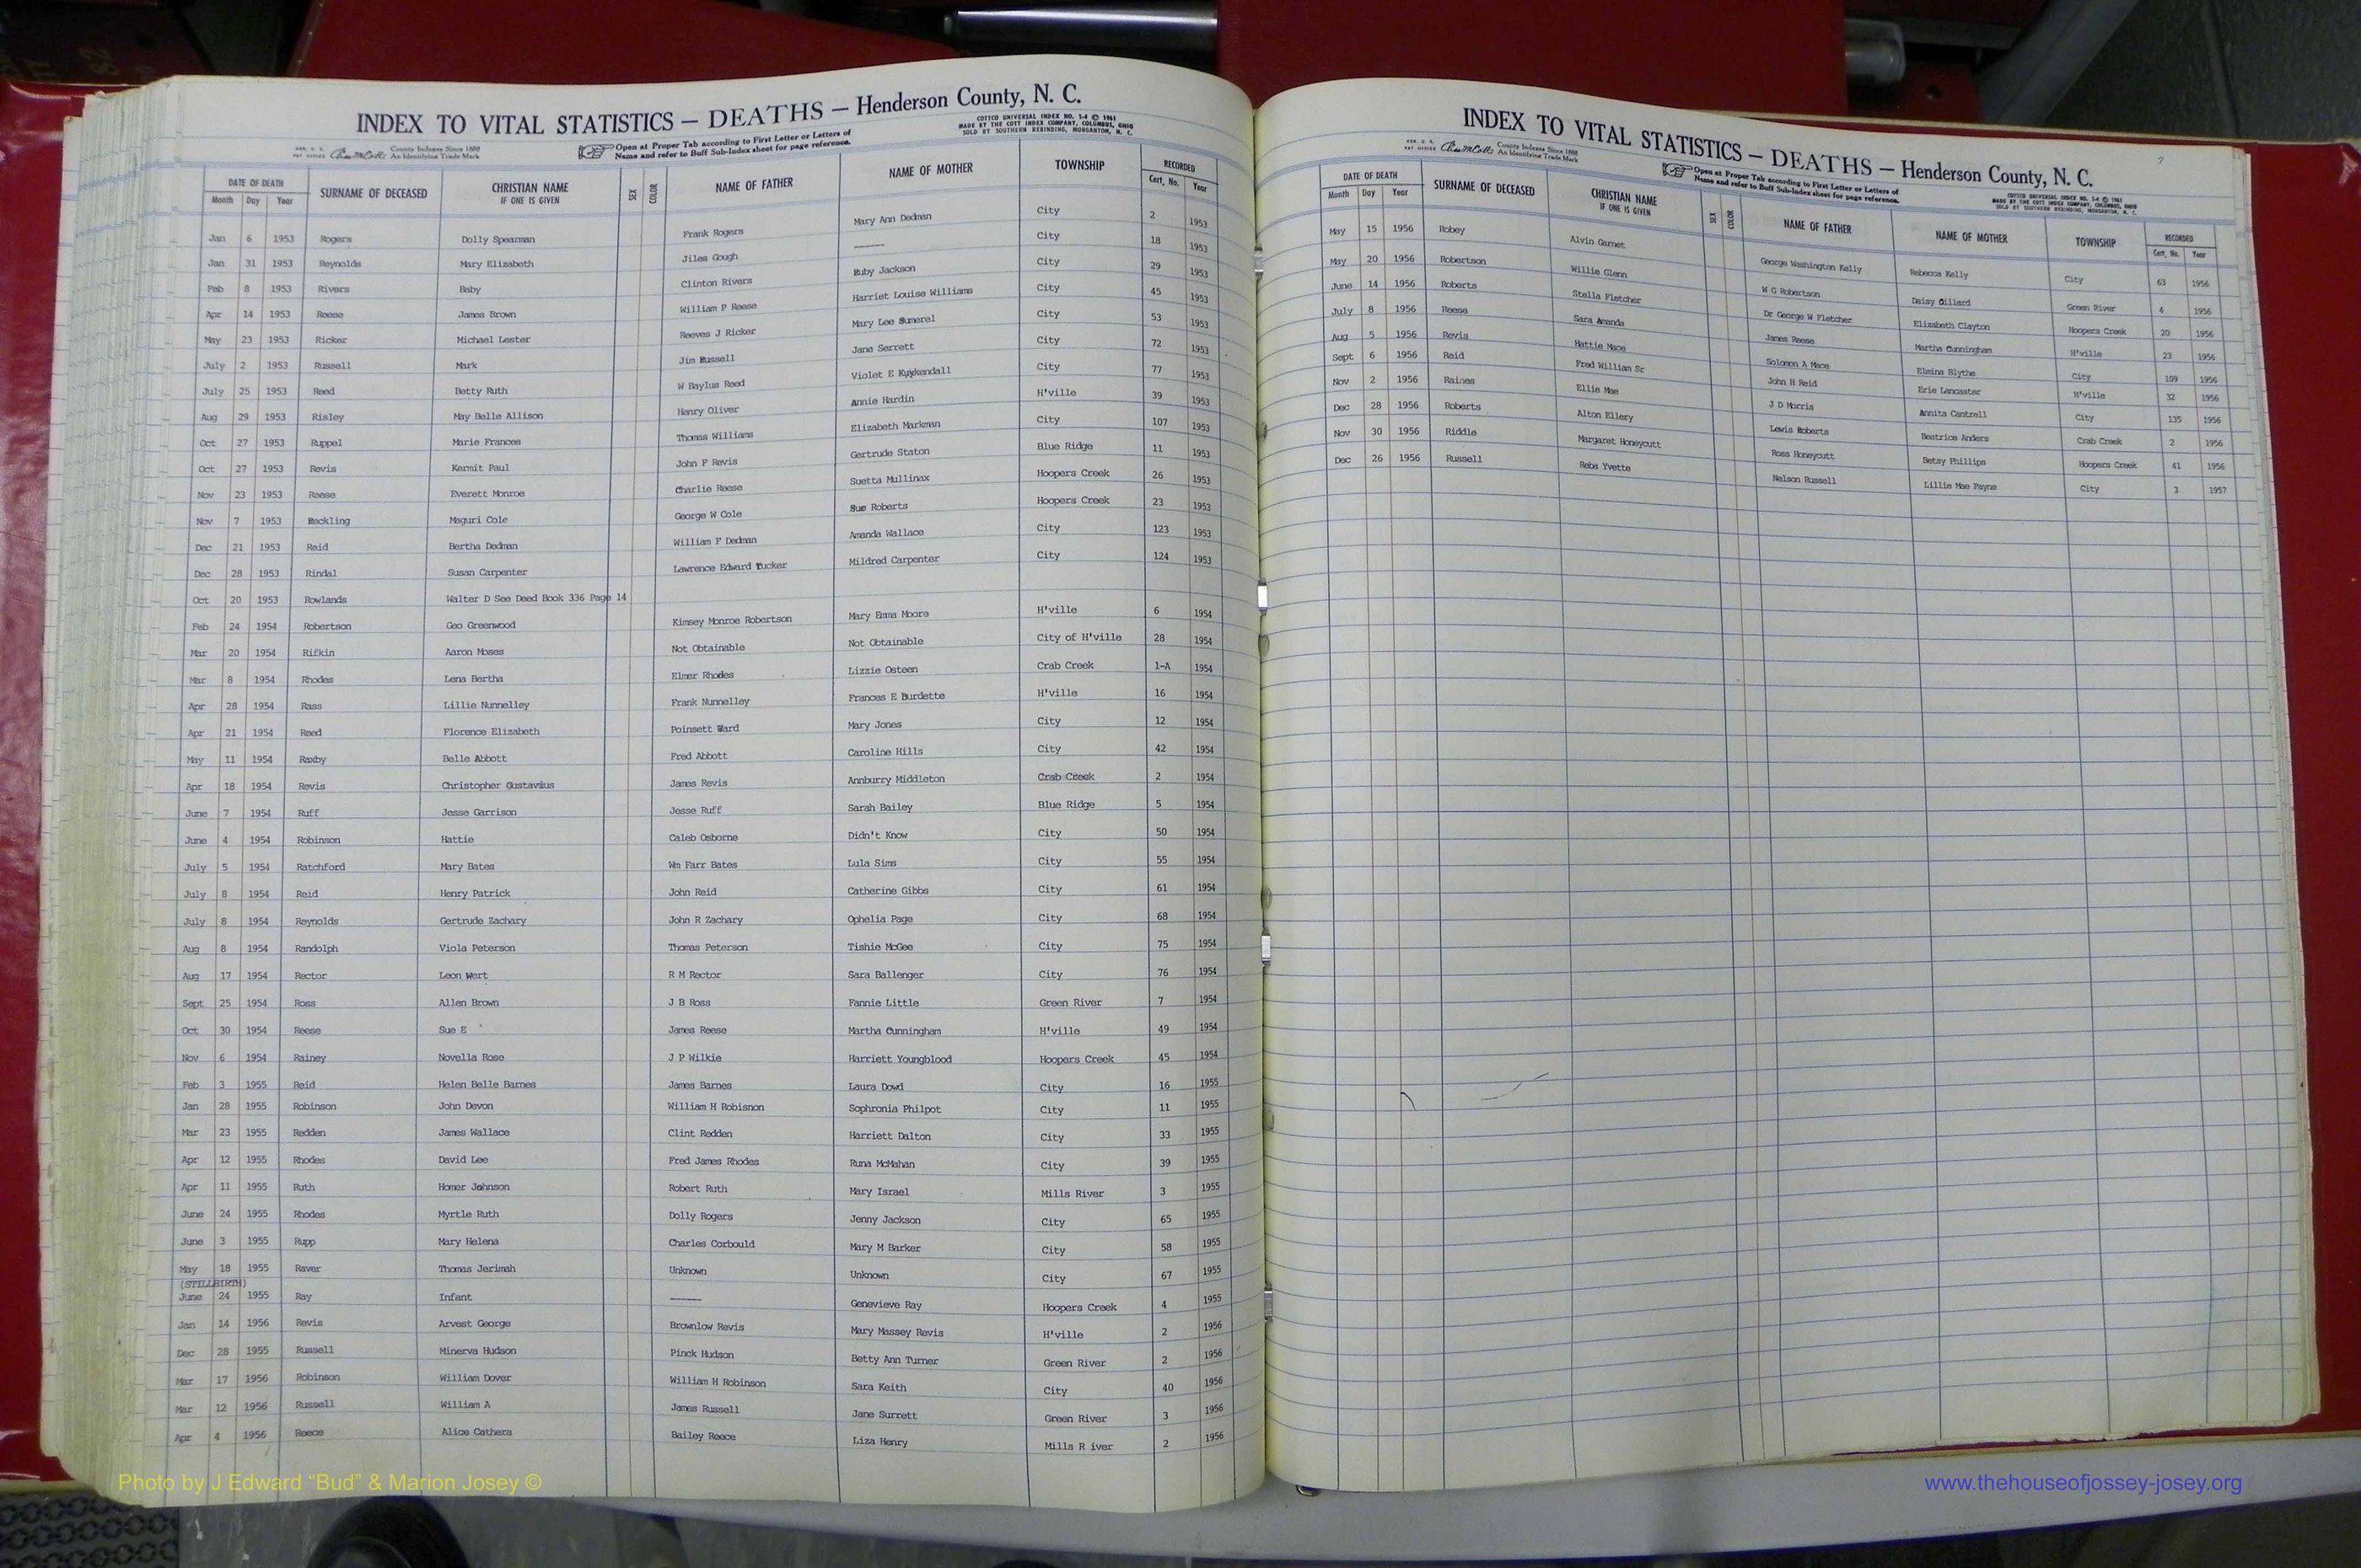 INDEX TO VITAL STATISTICS — DEATHS — Henderson County, N. C.
COTTCO UNIVERSAL INDEX NO. 1-4 © 1961
MADE BY THE COTT INDEX COMPANY, COLUMBUS, OHIO
SOLD BY SOUTHERN REBINDING, MORGANTON, N. C.
County Indexes Since 1888
An Identifying Trade Mark
Open at Proper Tab according to First Letter or Letters of
Name and refer to Buff Sub-Index sheet for page reference.
DATE OF DEATH SURNAME OF DECEASED CHRISTIAN NAME IF ONE IS GIVEN SEX COLOR NAME OF FATHER NAME OF MOTHER TOWNSHIP RECORDED
Month Day Year Cert. No. Year
Jan 6 1953 Rogers Dolly Spearman Frank Rogers Mary Ann Dedman City 2 1953
Jan 31 1953 Reynolds Mary Elizabeth Jiles Gough ------ City 18 1953
Feb 8 1953 Rivers Baby Clinton Rivers Ruby Jackson City 29 1953
Apr 14 1953 Reese James Brown William P Reese Harriet Louise Williams City 45 1953
May 23 1953 Ricker Michael Lester Reeves J Ricker Mary Lee Sumerel City 53 1953
July 2 1953 Russell Mark Jim Russell Jane Serrett City 72 1953
July 25 1953 Reed Betty Ruth W Baylus Reed Violet E Kuykendall City 77 1953
Aug 29 1953 Risley May Belle Allison Henry Oliver Annie Hardin H'ville 39 1953
Oct 27 1953 Ruppel Marie Frances Thomas Williams Elizabeth Markman City 107 1953
Oct 27 1953 Revis Kermit Paul John F Revis Gertrude Staton Blue Ridge 11 1953
Nov 23 1953 Reese Everett Monroe Charlie Reese Suetta Mullinax Hoopers Creek 26 1953
Nov 7 1953 Reckling Maguri Cole George W Cole Sue Roberts Hoopers Creek 23 1953
Dec 21 1953 Reid Bertha Dedman William F Dedman Amanda Wallace City 123 1953
Dec 28 1953 Rindal Susan Carpenter Lawrence Edward Tucker Mildred Carpenter City 124 1953
Oct 20 1953 Rowlands Walter D See Deed Book 336 Page 14
Feb 24 1954 Robertson Geo Greenwood Kimsey Monroe Robertson Mary Emma Moore H'ville 6 1954
Mar 20 1954 Rifkin Aaron Moses Not Obtainable Not Obtainable City of H'ville 28 1954
Mar 8 1954 Rhodes Lena Bertha Elmer Rhodes Lizzie Osteen Crab Creek 1-A 1954
Apr 28 1954 Rass Lillie Nunnelley Frank Nunnelley Frances E Burdette H'ville 16 1954
Apr 21 1954 Reed Florence Elizabeth Poinsett Ward Mary Jones City 12 1954
May 11 1954 Raxby Belle Abbott Fred Abbott Caroline Hills City 42 1954
Apr 18 1954 Revis Christopher Gustavius James Revis Annburry Middleton Crab Creek 2 1954
June 7 1954 Ruff Jesse Garrison Jesse Ruff Sarah Bailey Blue Ridge 5 1954
June 4 1954 Robinson Hattie Caleb Osborne Didn't Know City 50 1954
July 5 1954 Ratchford Mary Bates Wm Farr Bates Lula Sims City 55 1954
July 8 1954 Reid Henry Patrick John Reid Catherine Gibbs City 61 1954
July 8 1954 Reynolds Gertrude Zachary John R Zachary Ophelia Page City 68 1954
Aug 8 1954 Randolph Viola Peterson Thomas Peterson Tishie McGee City 75 1954
Aug 17 1954 Rector Leon Wert R M Rector Sara Ballenger City 76 1954
Sept 25 1954 Ross Allen Brown J B Ross Fannie Little Green River 7 1954
Oct 30 1954 Reese Sue E James Reese Martha Cunningham H'ville 49 1954
Nov 6 1954 Rainey Novella Rose J P Wilkie Harriett Youngblood Hoopers Creek 45 1954
Feb 3 1955 Reid Helen Belle Barnes James Barnes Laura Dowd City 16 1955
Jan 28 1955 Robinson John Devon William H Robisnon Sophronia Philpot City 11 1955
Mar 23 1955 Redden James Wallace Clint Redden Harriett Dalton City 33 1955
Apr 12 1955 Rhodes David Lee Fred James Rhodes Runa McMahan City 39 1955
Apr 11 1955 Ruth Homer Johnson Robert Ruth Mary Israel Mills River 3 1955
June 24 1955 Rhodes Myrtle Ruth Dolly Rogers Jenny Jackson City 65 1955
June 3 1955 Rupp Mary Helena Charles Corbould Mary M Barker City 58 1955
May 18 1955 Raver Thomas Jerimah Unknown Unknown City 67 1955
(STILLBIRTH)
June 24 1955 Ray Infant ------ Genevieve Ray Hoopers Creek 4 1955
Jan 14 1956 Revis Arvest George Brownlow Revis Mary Massey Revis H'ville 2 1956
Dec 28 1955 Russell Minerva Hudson Pinck Hudson Betty Ann Turner Green River 2 1956
Mar 17 1956 Robinson William Dover William H Robinson Sara Keith City 40 1956
Mar 12 1956 Russell William A James Russell Jane Surrett Green River 3 1956
Apr 4 1956 Reece Alice Cathera Bailey Reece Liza Henry Mills R iver 2 1956
Photo by J Edward “Bud” & Marion Josey ©
7
INDEX TO VITAL STATISTICS — DEATHS — Henderson County, N. C.
County Indexes Since 1888
An Identifying Trade Mark
Open at Proper Tab according to First Letter or Letters of
Name and refer to Buff Sub-Index sheet for page reference.
COTTCO UNIVERSAL INDEX NO. 1-4 © 1961
MADE BY THE COTT INDEX COMPANY, COLUMBUS, OHIO
SOLD BY SOUTHERN REBINDING, MORGANTON, N. C.
DATE OF DEATH SURNAME OF DECEASED CHRISTIAN NAME IF ONE IS GIVEN SEX COLOR NAME OF FATHER NAME OF MOTHER TOWNSHIP RECORDED
Month Day Year Cert. No. Year
May 15 1956 Robey Alvin Garnet George Washington Kelly Rebecca Kelly City 63 1956
May 20 1956 Robertson Willie Glenn W G Robertson Daisy Dillard Green River 4 1956
June 14 1956 Roberts Stella Fletcher Dr George W Fletcher Elizabeth Clayton Hoopers Creek 20 1956
July 8 1956 Reese Sara Amanda James Reese Martha Cunningham H'ville 23 1956
Aug 5 1956 Revis Hattie Mace Solomon A Mace Elmina Blythe City 109 1956
Sept 6 1956 Reid Fred William Sr John H Reid Erie Lancaster H'ville 32 1956
Nov 2 1956 Raines Ellie Mae J D Morris Annita Cantrell City 135 1956
Dec 28 1956 Roberts Alton Ellery Lewis Roberts Beatrice Anders Crab Creek 2 1956
Nov 30 1956 Riddle Margaret Honeycutt Ross Honeycutt Betsy Phillips Hoopers Creek 41 1956
Dec 26 1956 Russell Reba Yvette Nelson Russell Lillie Mae Payne City 3 1957
www.thehouseofjossey-josey.org